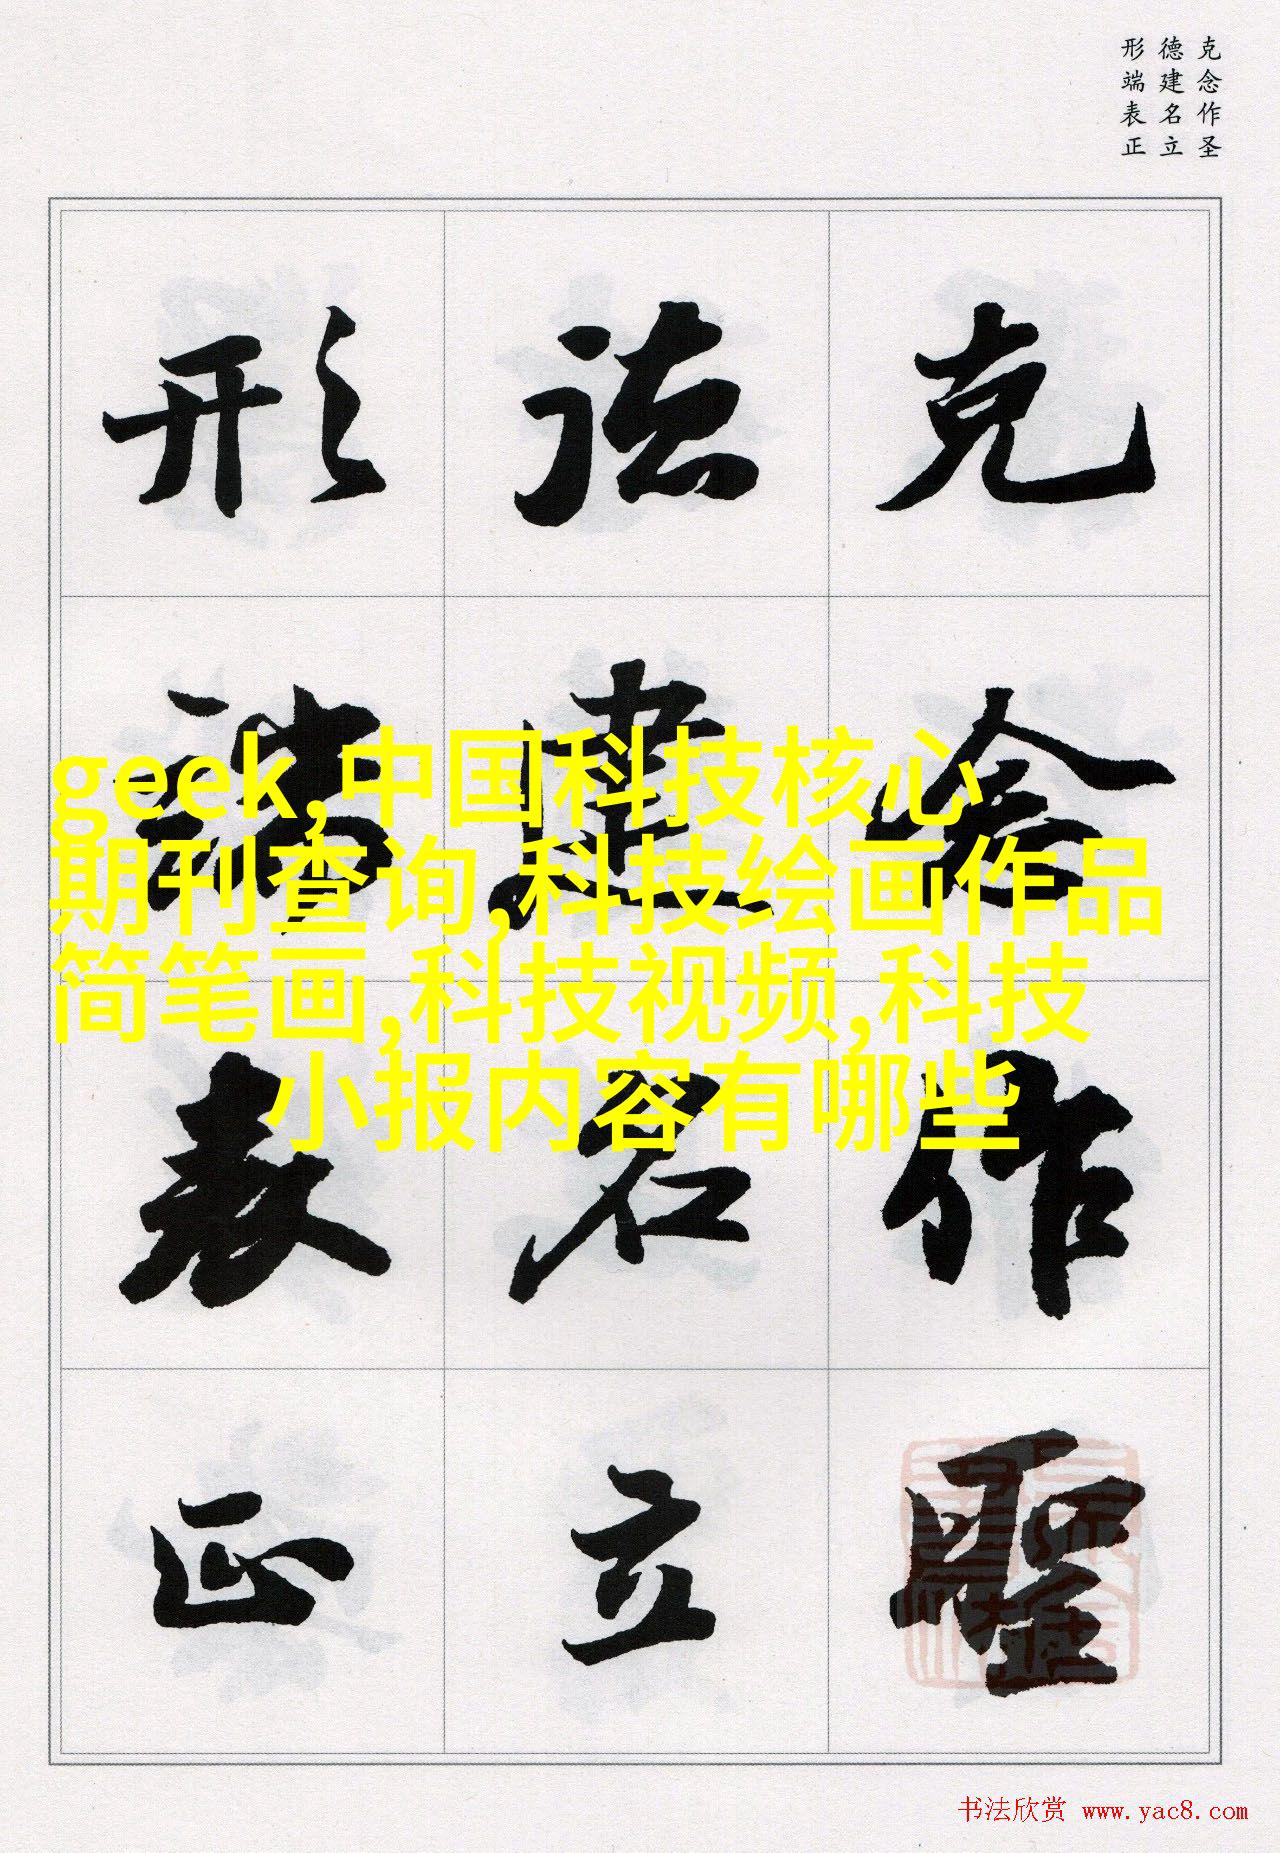 克念作圣
德建名立
形端表正
克念作聖
德建名立
形端表正
geek,中国科技核心
期刊查询,科技绘画作品
简笔画,科技视频,科技
小报内容有哪些
书法欣赏 www.yac8.com